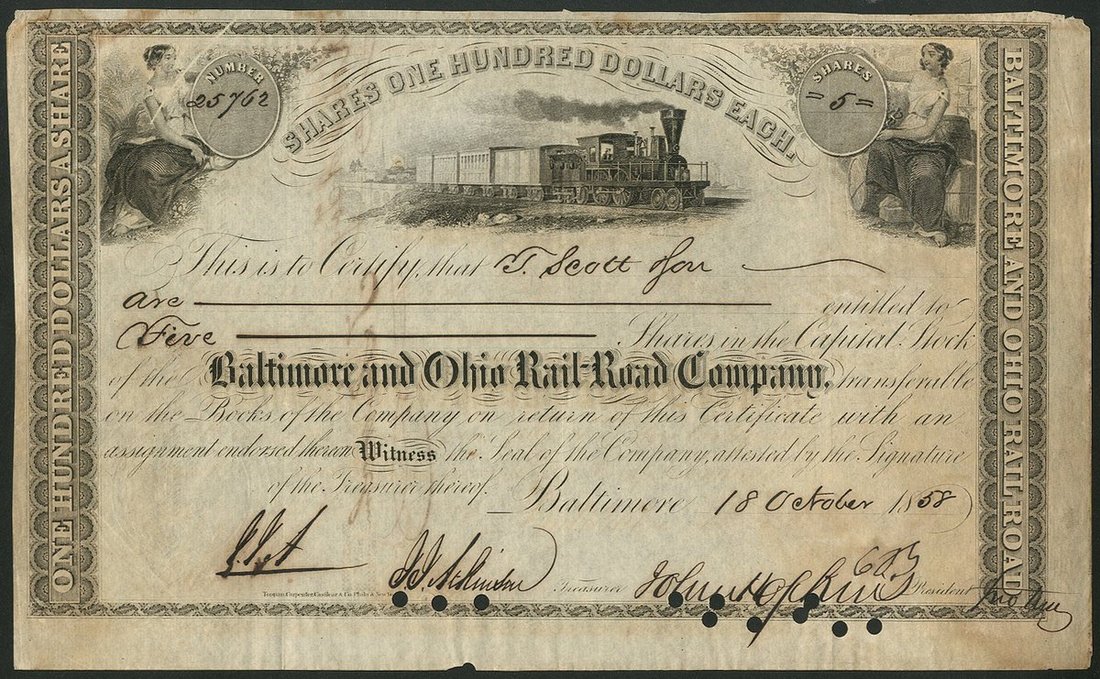 NUMBER
25762
SHARES ONE HUNDRED DOLLARS EACH.
SHARES
= 5 =
ONE HUNDRED DOLLARS A SHARE
BALTIMORE AND OHIO RAIL-ROAD
This is to Certify, that T. Scott & Son
are entitled to
Five Shares in the Capital Stock
of the Baltimore and Ohio Rail-Road Company, transferable
on the Books of the Company on return of this Certificate with an
assignment endorsed thereon Witness the Seal of the Company, attested by the Signature
of the Treasurer thereof. Baltimore 18 October 1858
J. I. Atkinson Treasurer President
Toppan, Carpenter, Casilear & Co. Phila. & New York